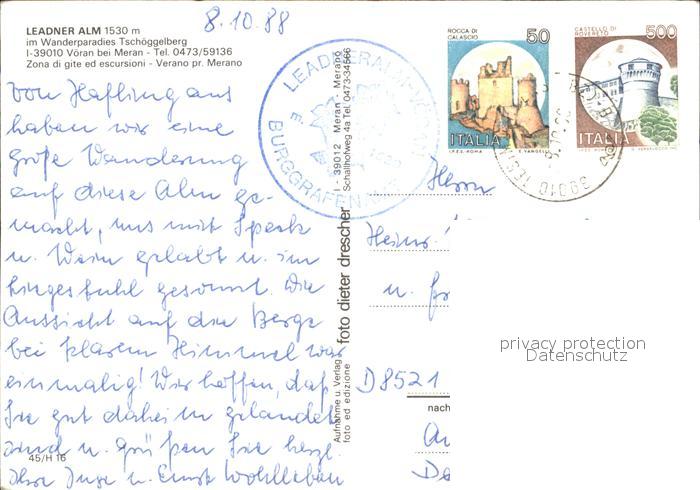 8.10.88
LEADNER ALM 1530 m
im Wanderparadies Tschöggelberg
I-39010 Vöran bei Meran - Tel. 0473/59136
Zona di gite ed escursioni - Verano pr. Merano
Von Hafling aus
haben wir eine
große Wanderung
auf diese Alm ge-
macht, uns mit Speck
u. Wein gelabt u. im
Liegestuhl gesonnt. Die
Aussicht auf die Berge
bei klarem Himmel war
einmalig! Wir hoffen, daß
Sie gut daheim gelandet
sind u. grüßen Sie herzl.
Ihre Inge u. Ernst Wohlleben
45/H 16
LEADNERALM
BURGGRAFENAMT
Aufnahme u. Verlag
foto ed edizione
foto dieter drescher
I - 39012 Meran Merano
Schallhofweg 4a Tel. 0473-34566
ROCCA DI
CALASCIO
50
ITALIA
I.P.Z.S. ROMA
CASTELLO DI
ROVERETO
500
ITALIA
39010
Herrn
Heinr.
u.
D 8521
nach
privacy protection
Datenschutz